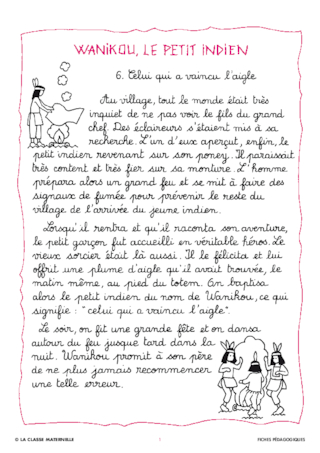 WANIKOU, LE PETIT INDIEN
6. Celui qui a vaincu l'aigle
Au village, tout le monde était très
inquiet de ne pas voir le fils du grand
chef. Des éclaireurs s'étaient mis à sa
recherche. L'un d'eux aperçut, enfin, le
petit indien revenant sur son poney. Il paraissait
très content et très fier sur sa monture. L'homme
prépara alors un grand feu et se mit à faire des
signaux de fumée pour prévenir le reste du
village de l'arrivée du jeune indien.
Lorsqu'il rentra et qu'il raconta son aventure,
le petit garçon fut accueilli en véritable héros. Le
vieux sorcier était là aussi. Il le félicita et lui
offrit une plume d'aigle qu'il avait trouvée, le
matin même, au pied du totem. On baptisa
alors le petit indien du nom de Wanikou, ce qui
signifie : "celui qui a vaincu l'aigle".
Le soir, on fit une grande fête et on dansa
autour du feu jusque tard dans la
nuit. Wanikou promit à son père
de ne plus jamais recommencer
une telle erreur.
© LA CLASSE MATERNELLE
1
FICHES PÉDAGOGIQUES